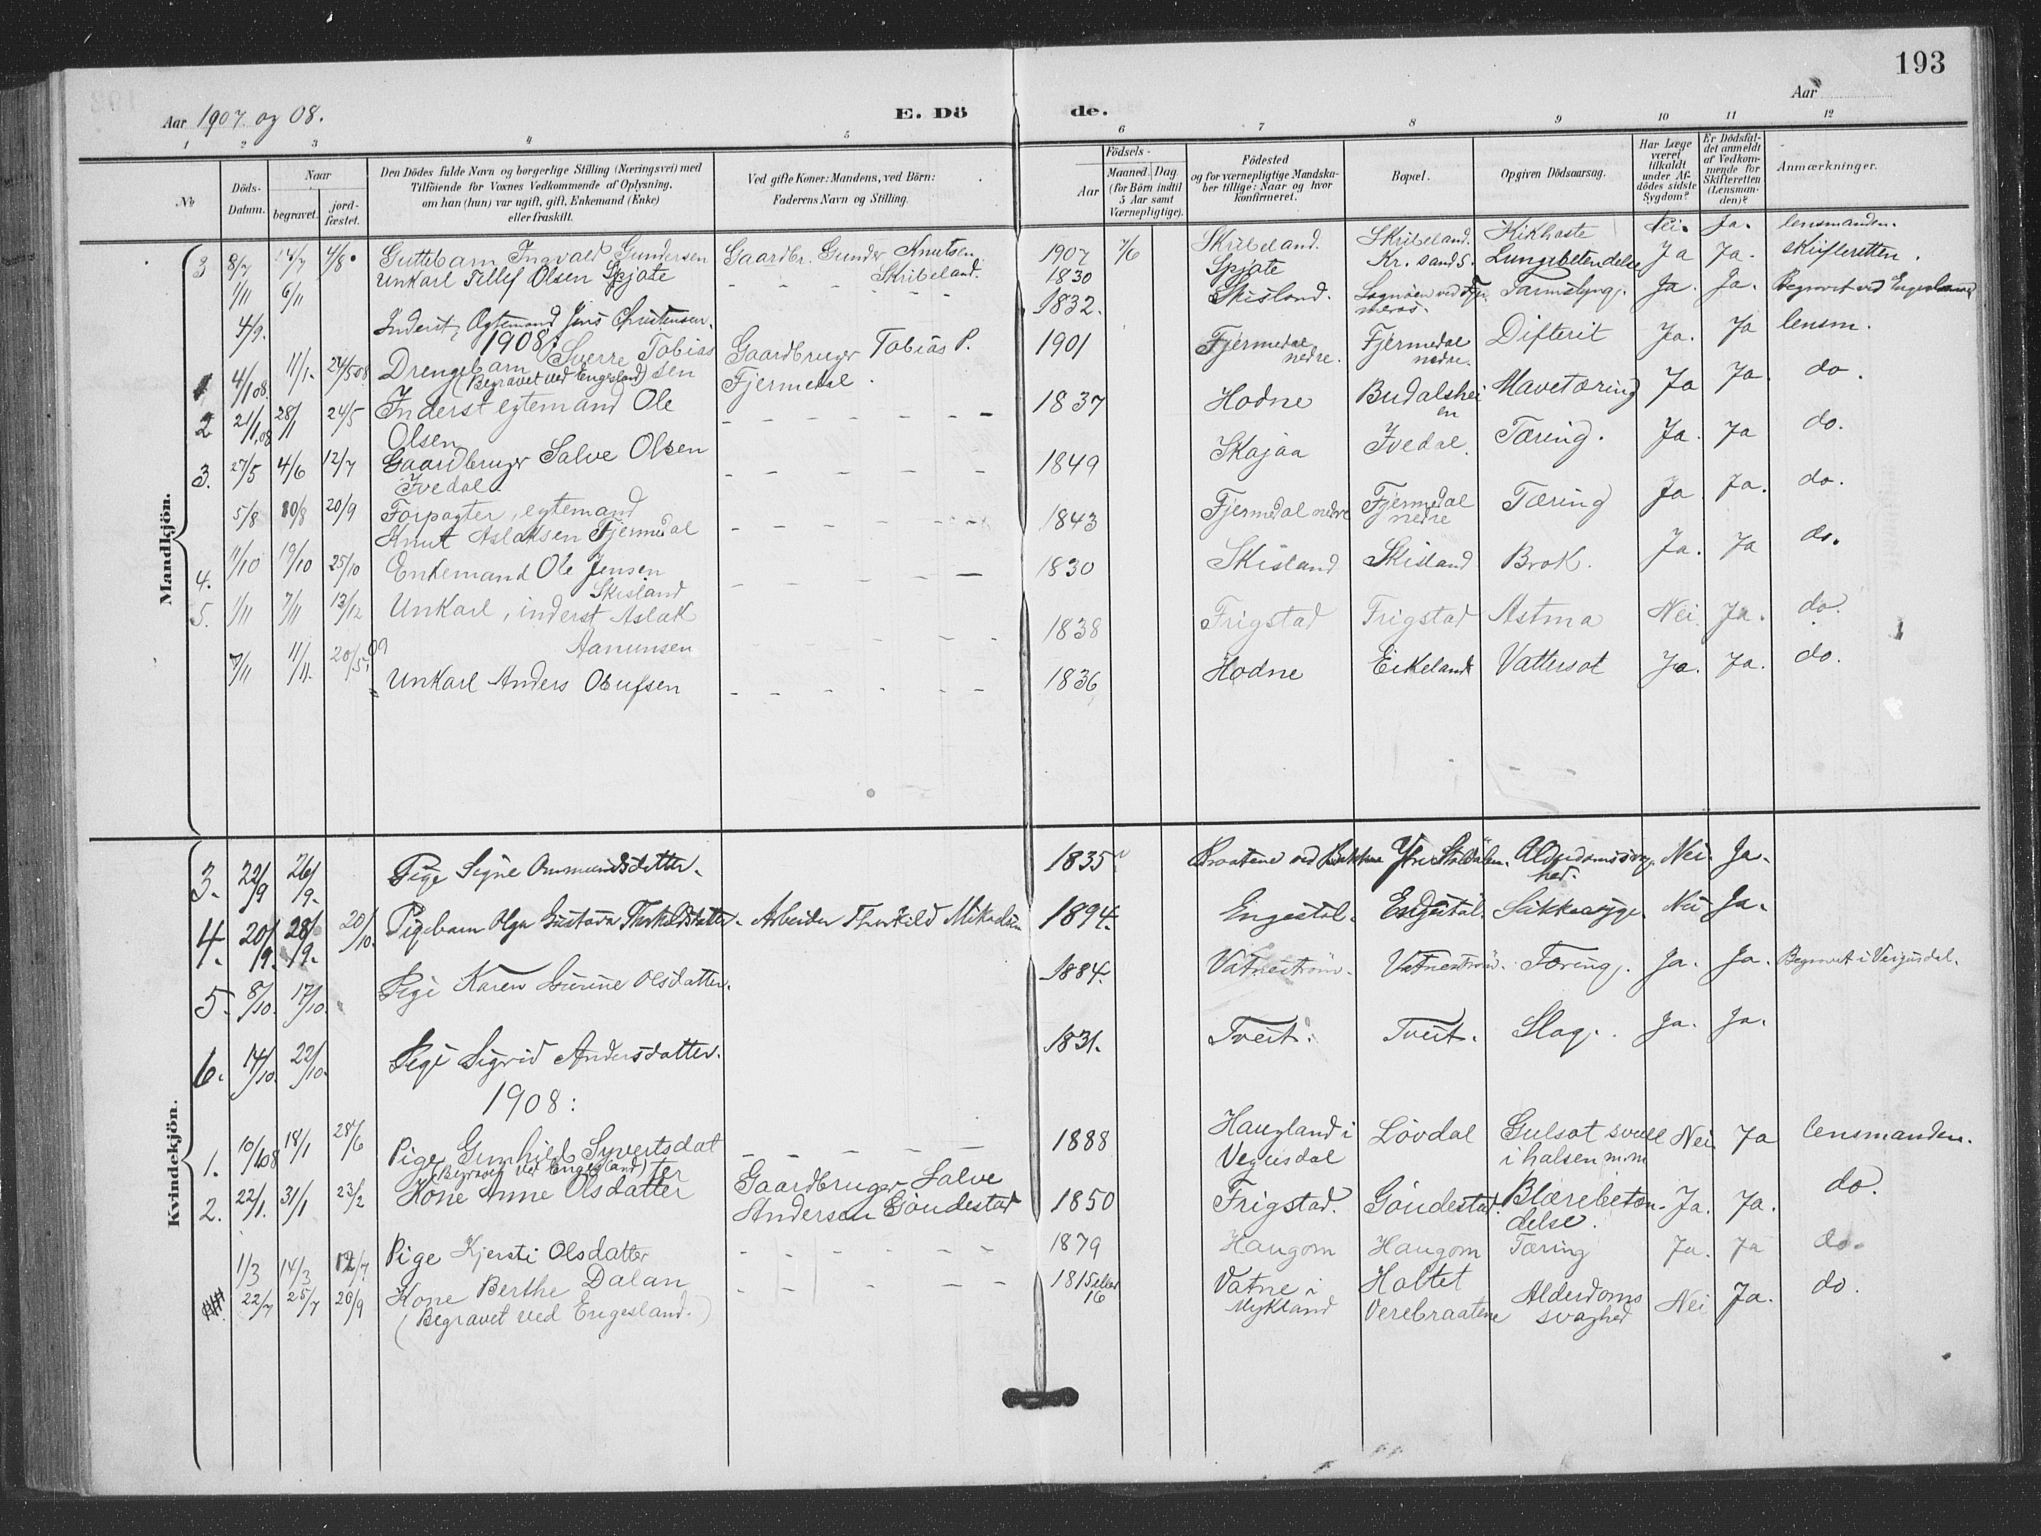 193
Aar 1907 og 08.
E. Dö de.
Aar
1 2 3 4 5 6 7 8 9 10 11 12
№
Döds-Datum.
Naar
begravet.
jord-fæstet.
Den Dödes fulde Navn og borgerlige Stilling (Næringsvei) med
Tilföiende for Voxnes Vedkommende af Oplysning.
om han (hun) var ugift, gift, Enkemand (Enke)
eller fraskilt.
Ved gifte Koner: Mandens, ved Börn:
Faderens Navn og Stilling.
Födsels-
Aar
Maaned. Dag.
(for Börn indtil
5 Aar samt
Værnepligtige).
Födested
og for værnepligtige Mandska-
ber tillige: Naar og hvor
konfirmeret.
Bopæl.
Opgiven Dödsaarsag.
Har Læge
været
tilkaldt
under Af-
dödes sidste
Sygdom?
Er Dödsfal-
det anmeldt
af Vedkom-
mende for
Skifteretten
(Lensman-
den)?
Anmærkninger.
Mandkjön.
3 8/7 14/7 4/8. Guttebarn Ingvald Gundersen Gaardbr. Gunder Knutsen Skribeland. 1907 7/6 Skribeland. Skribeland. Kikhoste Nei. Ja. lensmanden.
1/11 6/11 Unkarl Tellef Olsen Spjote - - - - 1830 Spjote Kr.sand S. Lungebetendelse Ja Ja. skifteretten.
4/9. Inderst, Egtemand Jens Christensen. 1832. Skisland. Ja. Ja. Begravet ved Engesland
1908:
1 4/1 08. 11/1. 24/5 08 Drengebarn Sverre Tobias sen Gaardbruger Tobias P. Fjermedal. 1901 Fjermedal nedre. Fjermedal nedre. Difterit Ja. Ja lensm.
(Begravet ved Engesland)
2 21/1 08 28/1 24/5 Inderst egtemand Ole Olsen - - - - 1837 Hodne Budalshei en Mavetæring Ja Ja. do.
3. 27/5 4/6 12/7 Gaardbruger Salve Olsen Ivedal. - - - - 1849 Skajaa Ivedal. Tæring. Ja. Ja do.
5/8 10/8 20/9 Forpagter, egtemand Knut Aslaksen Fjermedal - - - - 1843 Fjermedal nedre Fjermedal nedre Tæring Ja Ja. do.
4. 11/10 19/10 25/10 Enkemand Ole Jensen Skisland - - - - 1830 Skisland Skisland Brok. Ja. Ja do.
5. 1/11 7/11 13/12 Unkarl, inderst Aslak Aanunsen - - - - 1838 Frigstad Frigstad Astma Nei. Ja. do.
7/11 11/11. 20/5 09 Unkarl Anders Olufsen - - - - 1836 Hodne Eikeland Vattersot Ja. Ja. do.
Kvindekjön.
3. 22/9 26/9. Pige Signe Ommundsdatter. 1835 Braatene ved Nei. Ja.
4. 20/9. 28/9. 20/10. Pigebarn Olga Gustava Thorkildsdatter. Arbeider Thorkild 1894. Engestøl. Engestøl. Nei Ja.
5. 8/10. 17/10. Pige Karen Sirine Olsdatter. 1884. Vatnestrøm. Vatnestrøm. Tæring. Ja. Ja. Begravet i Vegusdal.
6. 14/10. 22/10. Pige Sigrid Andersdatter. 1831. Tveit. Tveit. Slag. Ja. Ja.
1908:
1. 10/1 08 18/1 28/6 Pige Gunhild Syvertsdat ter - - - - 1888 Haugland i Vegusdal Lövdal Gulsot svull i halsen m.m Nei Ja lensmanden.
(Begravet ved Engesland)
2. 22/1. 31/1 23/2 Kone Anne Olsdatter Gaardbruger Salve Andersen Göudestad 1850 Frigstad. Göudestad. Blærebeten- delse. Ja. Ja. do.
1/3 14/3 12/7 Pige Kjersti Olsdatter - - - - 1879 Haugom Haugom Tæring Ja. Ja do.
22/7 25/7 20/9 Kone Berthe Dalan - - - - 1815 eller 16 Vatne i Mykland Holtet Verebraatene Alderdoms svaghed Nei Ja. do.
(Begravet ved Engesland.)